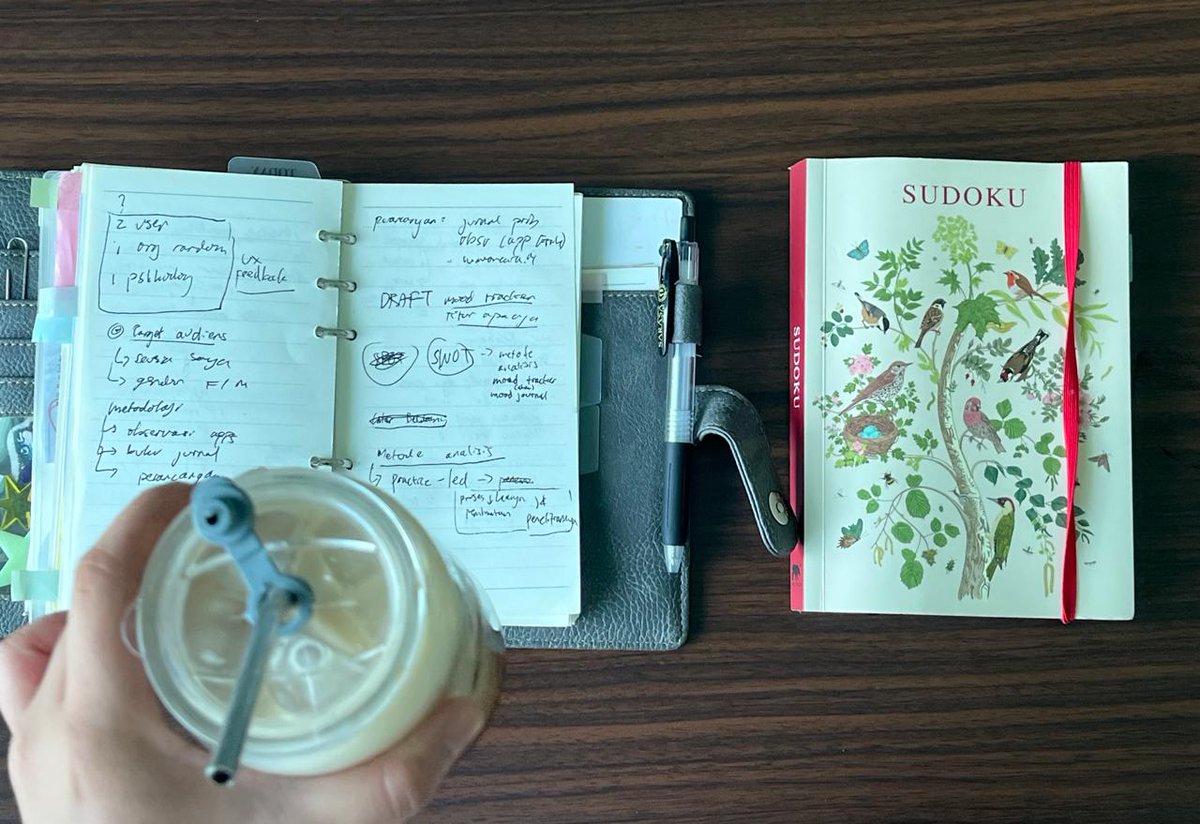 ?
2 user
1 org random
1 psikolog
UX
feedback
Target audiens
seusia saya
gender F/M
metodologi
observasi apps
buku jurnal
perancangan
perancangan: jurnal prib
obsv (app
wawancara
DRAFT mood tracker
fitur apa aja
SWOT → metode
analisis
mood tracker
mood journal
Metode analisis
practice-led →
proses design
penelitian
SARASA
SUDOKU
SUDOKU